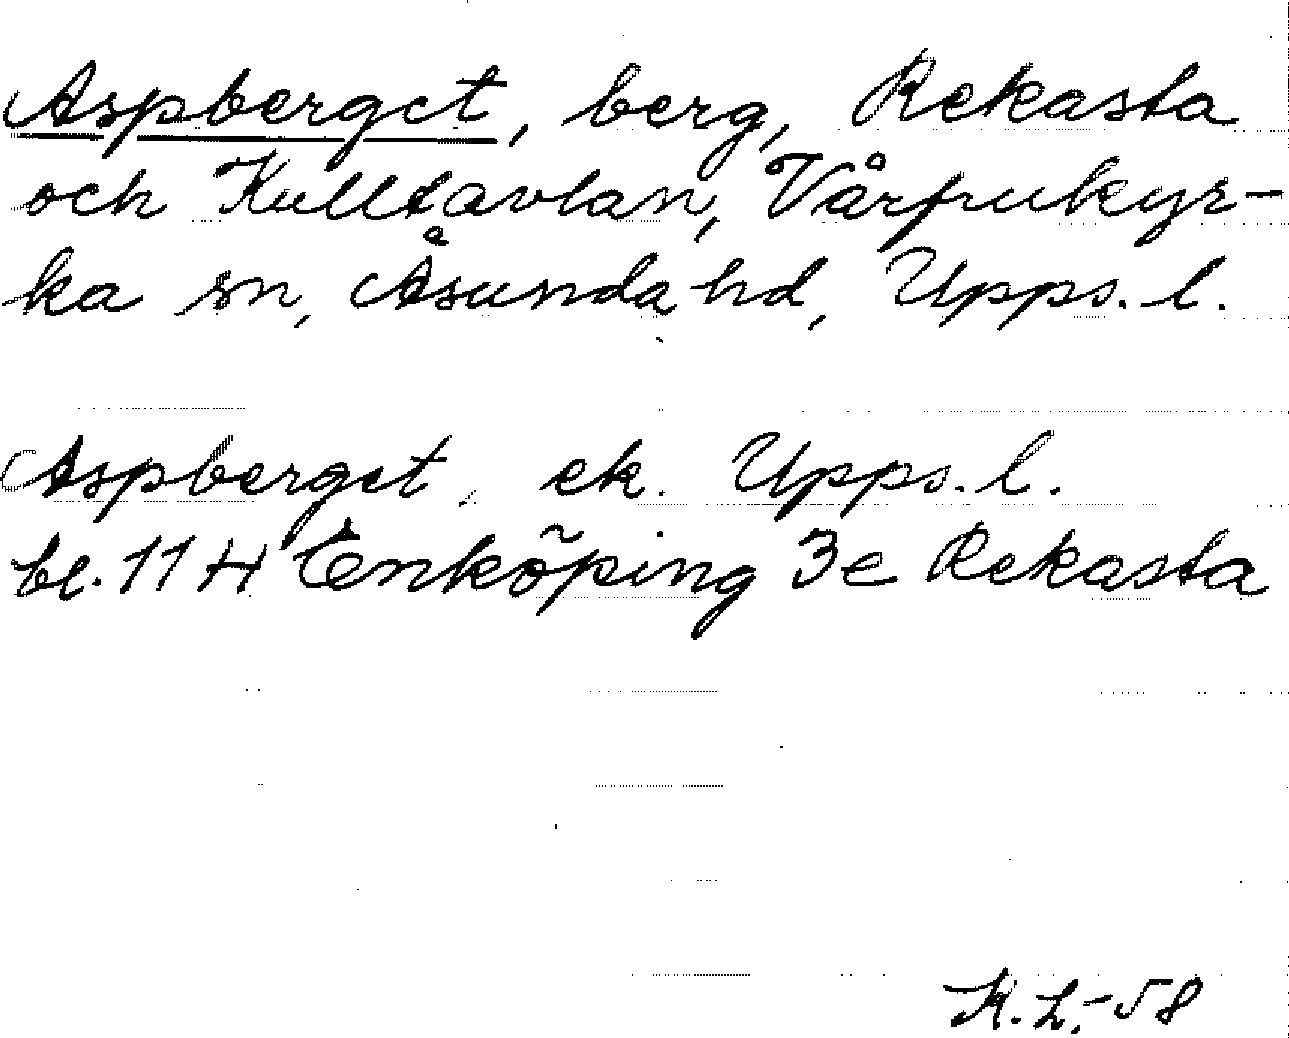 Aspberget, berg, Rekasta
och Kulltavlan, Vårfrukyr-
ka sn, Åsunda hd, Upps. l.
Aspberget, ek. Upps. l.
bl. 11 H Enköping 3e Rekasta
K. L. -58